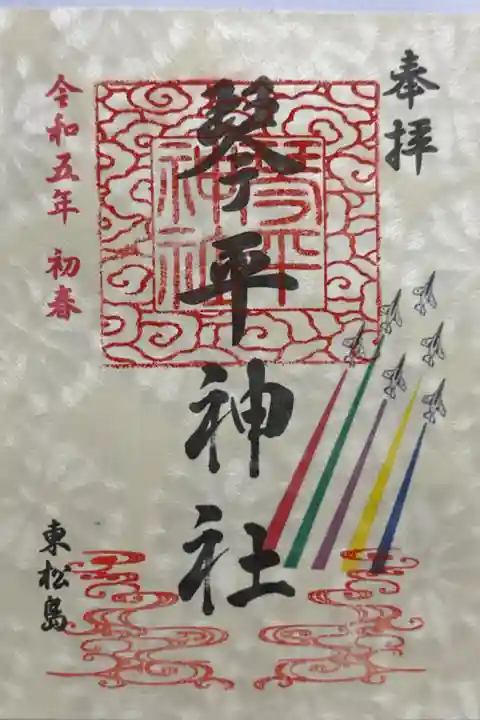 奉拝
琴平神社
琴平
神社
令和五年 初春
東松島